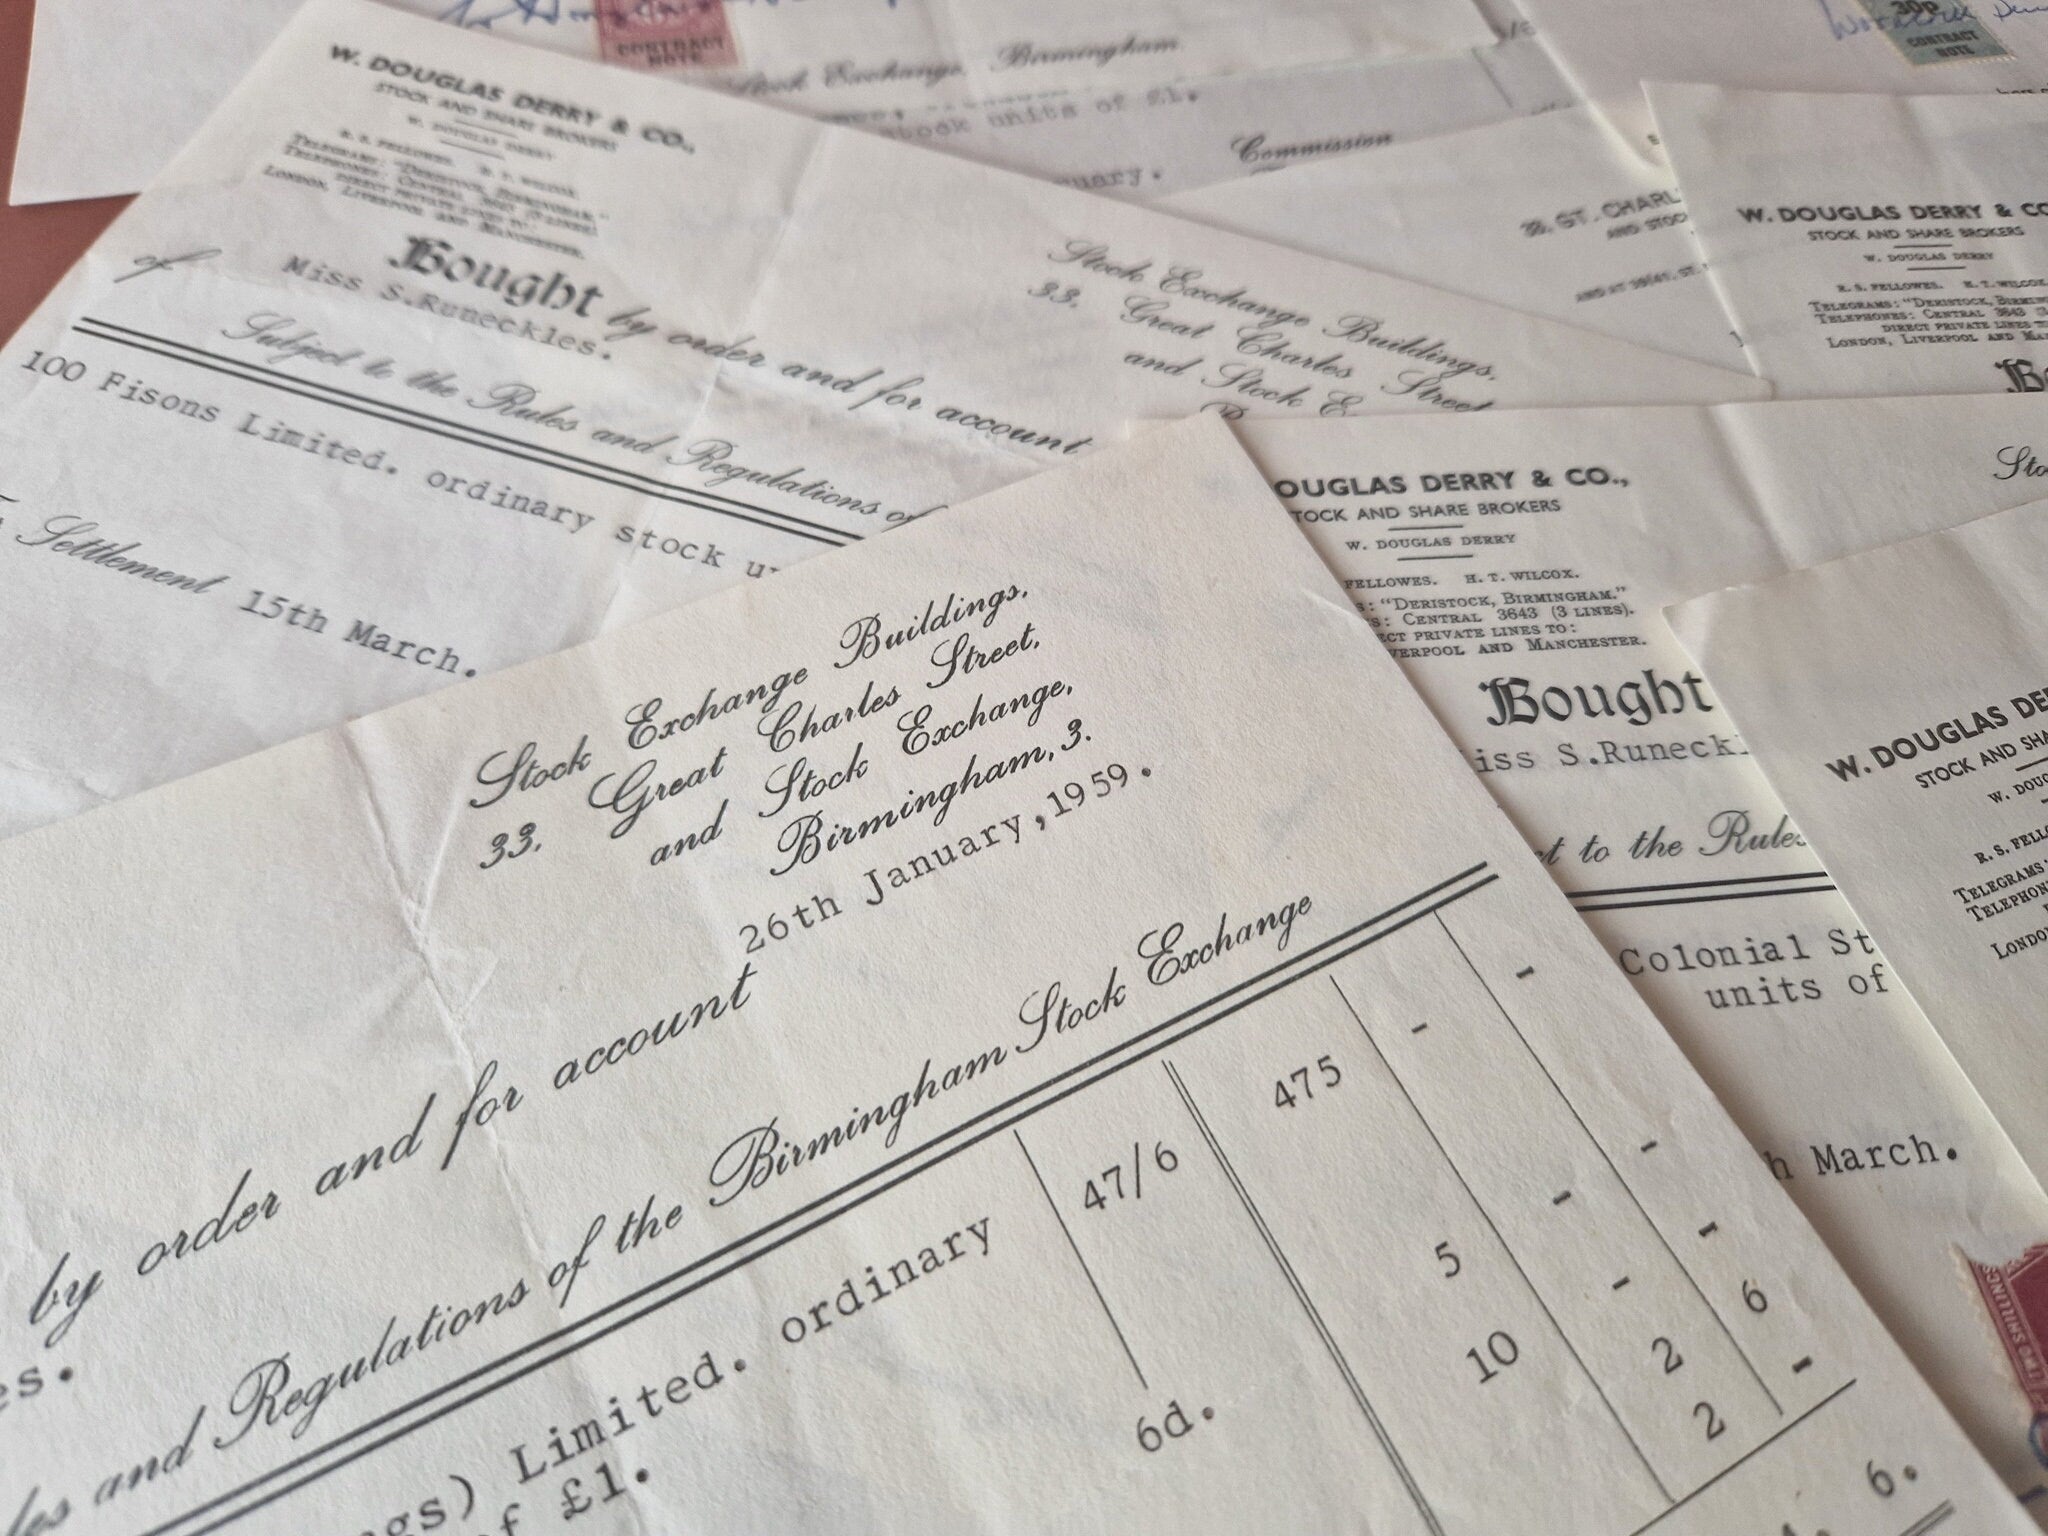 CONTRACT
NOTE
Stock Exchange, Birmingham.
stock units of £1.
Commission
30p
CONTRACT
NOTE
W. DOUGLAS DERRY & CO.,
STOCK AND SHARE BROKERS
W. DOUGLAS DERRY
R. S. FELLOWES. H. T. WILCOX.
TELEGRAMS: "DERISTOCK, BIRMINGHAM."
TELEPHONES: CENTRAL 3643 (3 LINES)
DIRECT PRIVATE LINES TO:
LONDON, LIVERPOOL AND MANCHESTER.
Bought by order and for account
of Miss S.Runeckles.
Subject to the Rules and Regulations of
100 Fisons Limited. ordinary stock
Settlement 15th March.
Stock Exchange Buildings,
33, Great Charles Street
and Stock E
ST. CHARL
AND STOC
W. DOUGLAS DERRY & CO
STOCK AND SHARE BROKERS
W. DOUGLAS DERRY
R. S. FELLOWES. H. T. WILCOX
TELEGRAMS: "DERISTOCK, BIRMIN
TELEPHONES: CENTRAL 3643 (3
DIRECT PRIVATE LINES TO
LONDON, LIVERPOOL AND MA
Bo
OUGLAS DERRY & CO.,
TOCK AND SHARE BROKERS
W. DOUGLAS DERRY
FELLOWES. H. T. WILCOX.
S: "DERISTOCK, BIRMINGHAM."
S: CENTRAL 3643 (3 LINES).
ECT PRIVATE LINES TO:
VERPOOL AND MANCHESTER.
Bought
iss S.Runeckl
ct to the Rules
Colonial St
units of
h March.
Sto
W. DOUGLAS DE
STOCK AND SHA
W. DOUG
R. S. FELLO
TELEGRAMS:
TELEPHON
LONDO
TWO SHILLINGS
Stock Exchange Buildings,
33, Great Charles Street,
and Stock Exchange,
Birmingham, 3.
26th January,1959.
by order and for account
es.
les and Regulations of the Birmingham Stock Exchange
gs) Limited. ordinary 47/6 475 - -
of £1.
5 - -
6d. 10 - -
2 6
2 -
6.